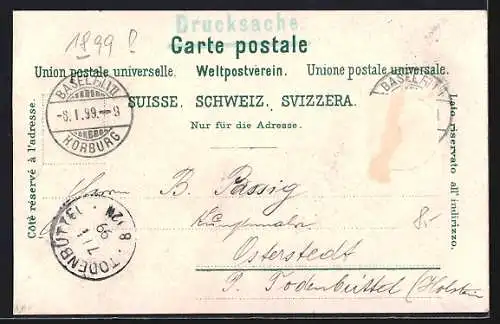 Drucksache
1899
Carte postale
Union postale universelle. Weltpostverein. Unione postale universale.
SUISSE. SCHWEIZ. SVIZZERA.
Nur für die Adresse.
Côté réservé à l'adresse.
Lato riservato all' indirizzo.
BASEL
-8.I.99.-9
HORBURG
BASEL
Herrn B. Passig
Kaufmann
Osterstedt
P. Todenbüttel (Holstein
8.-
TODENBÜTTEL
99
8-12N